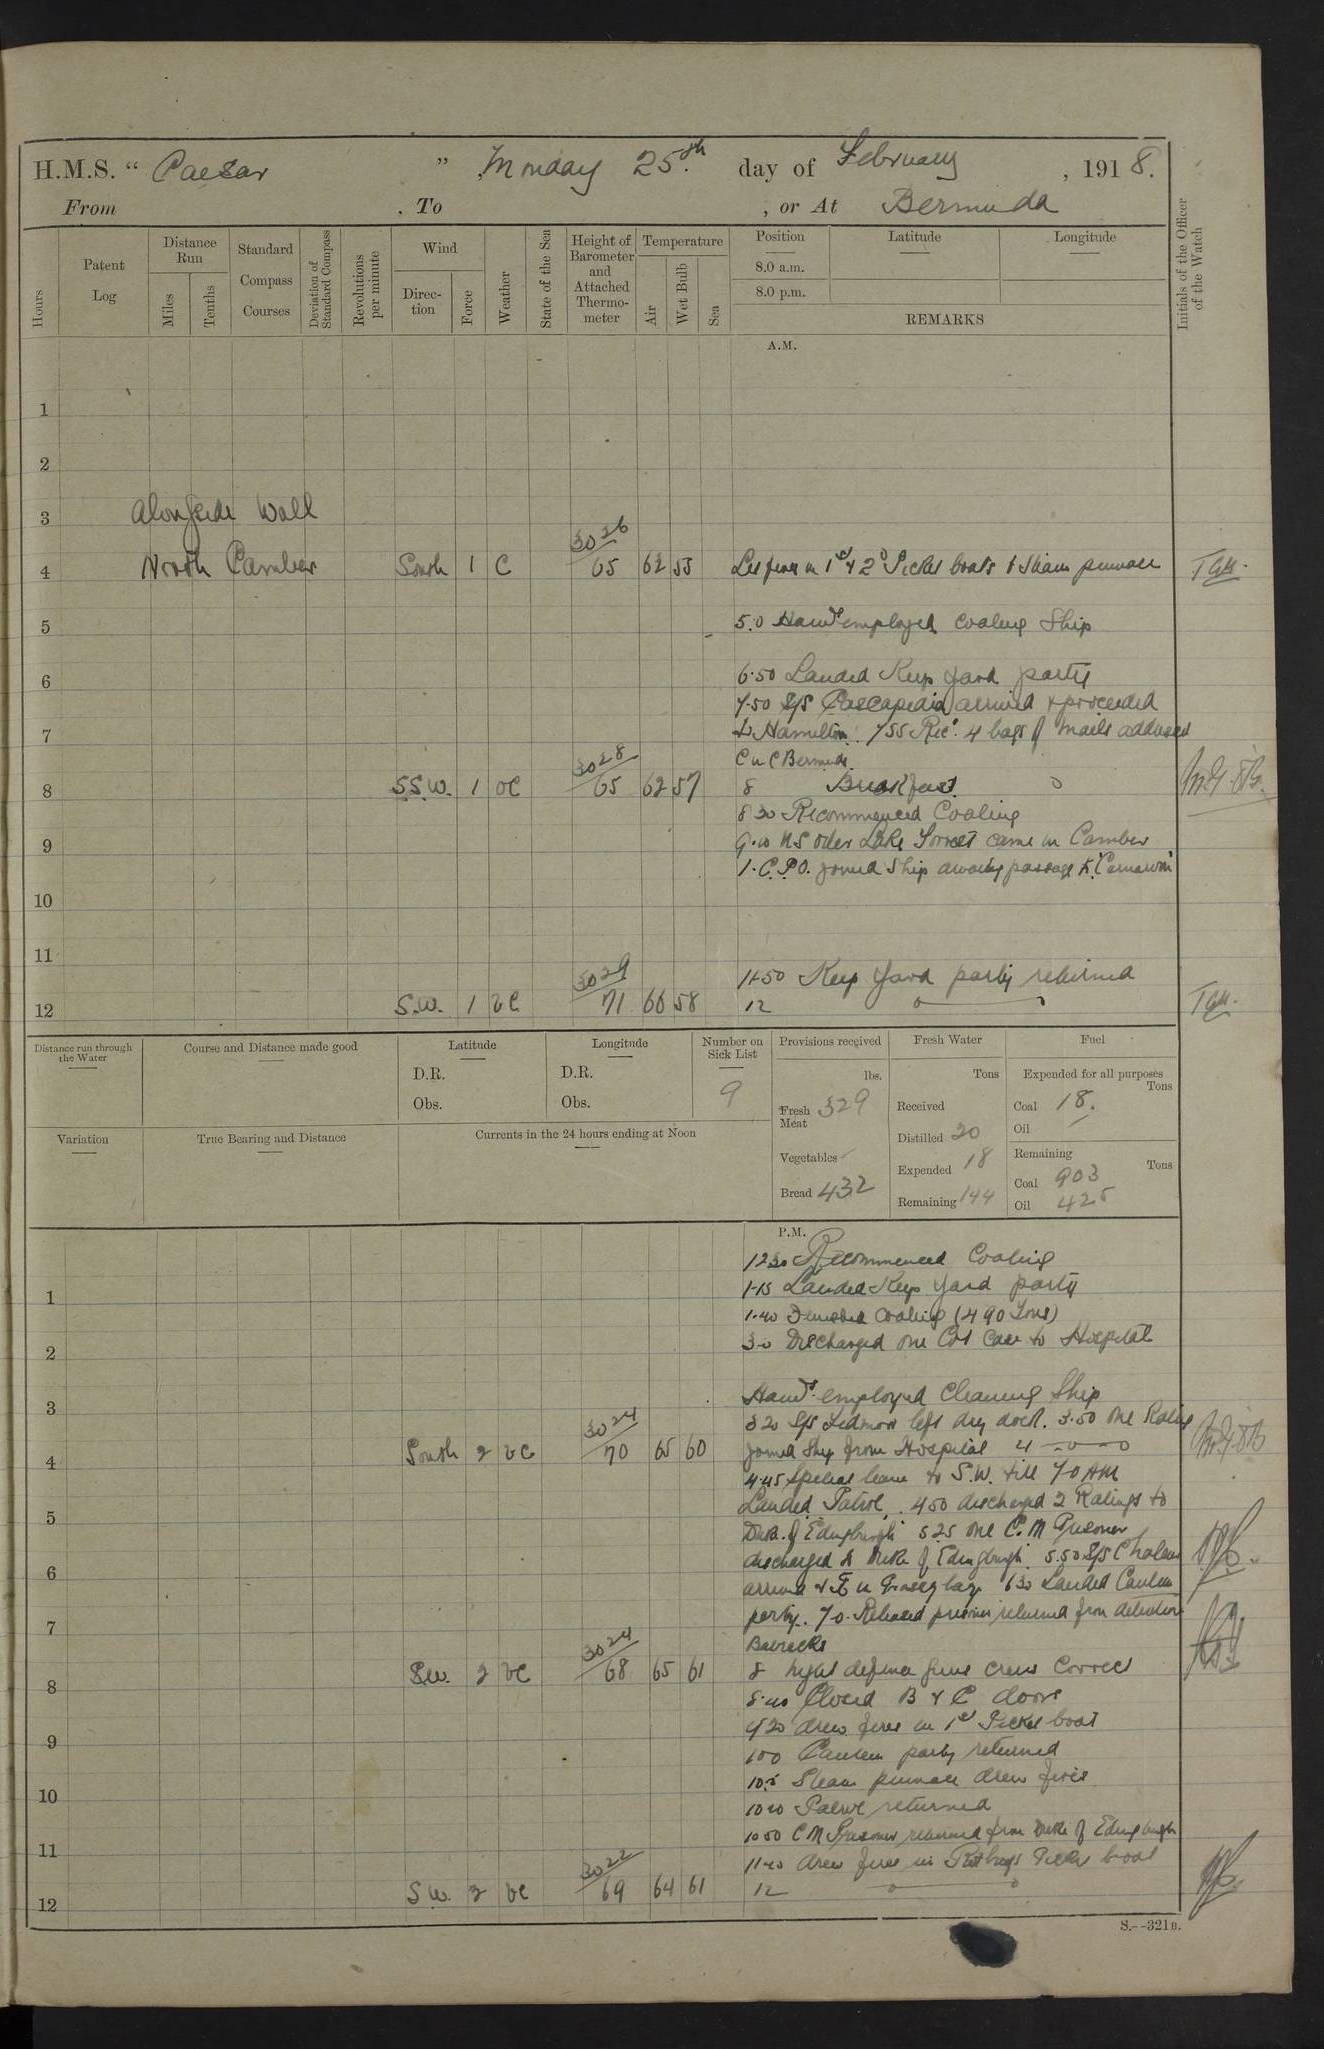 H.M.S. “ Caesar ” , Monday 25th. day of February , 1918.
From , To , or At Bermuda
Hours
Patent Log
Distance Run
Miles
Tenths
Standard Compass Courses
Deviation of Standard Compass
Revolutions per minute
Wind
Direction
Force
Weather
State of the Sea
Height of Barometer and Attached Thermometer
Temperature
Air
Wet Bulb
Sea
Position
8.0 a.m.
8.0 p.m.
Latitude
Longitude
REMARKS
Initials of the Officer of the Watch
A.M.
1
2
3 Alongside Wall
4 North Camber South 1 C 3026 65 62 55 Lit fires in 1st & 2d Picket boats & steam pinnace TGH.
5 5.0 Hands employed Coaling Ship
6 6.50 Landed Keep Yard party
7.50 S/S Cascapedia arrived & proceeded
7 to Hamilton. 755 Rec'd 4 bags of mails addressed
C in C Bermuda.
8 S.S.W. 1 OC 3028 65 62 57 8 Breakfast
8 30 Recommenced Coaling
9 came in Camber
1. C.P.O. joined Ship awaiting passage to "Carnarvon"
10
11 11-50 Keep Yard party returned
12 S.W. 1 bC 3029 71 66 58 12 TGH.
Distance run through the Water
Course and Distance made good
Latitude
D.R.
Obs.
Longitude
D.R.
Obs.
Number on Sick List
9
Provisions received
lbs.
Fresh Meat 329
Vegetables -
Bread 432
Fresh Water
Tons
Received
Distilled 20
Expended 18
Remaining 144
Fuel
Expended for all purposes
Tons
Coal 18.
Oil /
Remaining
Tons
Coal 903
Oil 425
Variation
True Bearing and Distance
Currents in the 24 hours ending at Noon
P.M.
1230 Recommenced Coaling
1 1-15 Landed Keep Yard party
1.40 Finished Coaling (490 Tons)
2 3-0 Discharged one Cot Case to Hospital
3 Hands employed Cleaning Ship
3 20 S/S left dry dock. 3.50 One Rating
4 South 2 bC 3024 70 65 60 joined Ship from Hospital 4
4.45 Special leave to S.W. till 7.0 AM
5 Landed Patrol. 450 discharged 2 Ratings to
Duke of Edinburgh 5.25 one C.M Prisoner
6 discharged to Duke of Edinburgh 5.50 S/S
arrived & in Grassy bay 630 Landed Canteen
7 party. 7.0. Released prisoner returned from detention
Barracks
8 S.W. 2 bC 3024 68 65 61 8 Night defence guns crews correct
8.40 Closed B & C doors
9 920 drew fires in 1st Picket boat
100 Canteen party returned
10 10.5 Steam pinnace drew fires
1020 Patrol returned
11 1050 C M Prisoner returned from Duke of Edinburgh
1140 drew fires in Picket boat
12 S.W. 2 bC 3022 69 64 61 12
S.--321B.